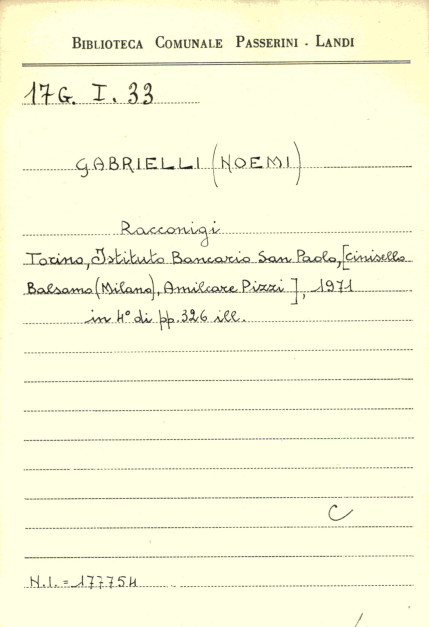 BIBLIOTECA COMUNALE PASSERINI - LANDI
17G. I. 33
GABRIELLI (NOEMI)
Racconigi
Torino, Istituto Bancario San Paolo, [Cinisello
Balsamo (Milano), Amilcare Pizzi], 1971
in 4° di pp. 326 ill.
C
N.I. = 177754